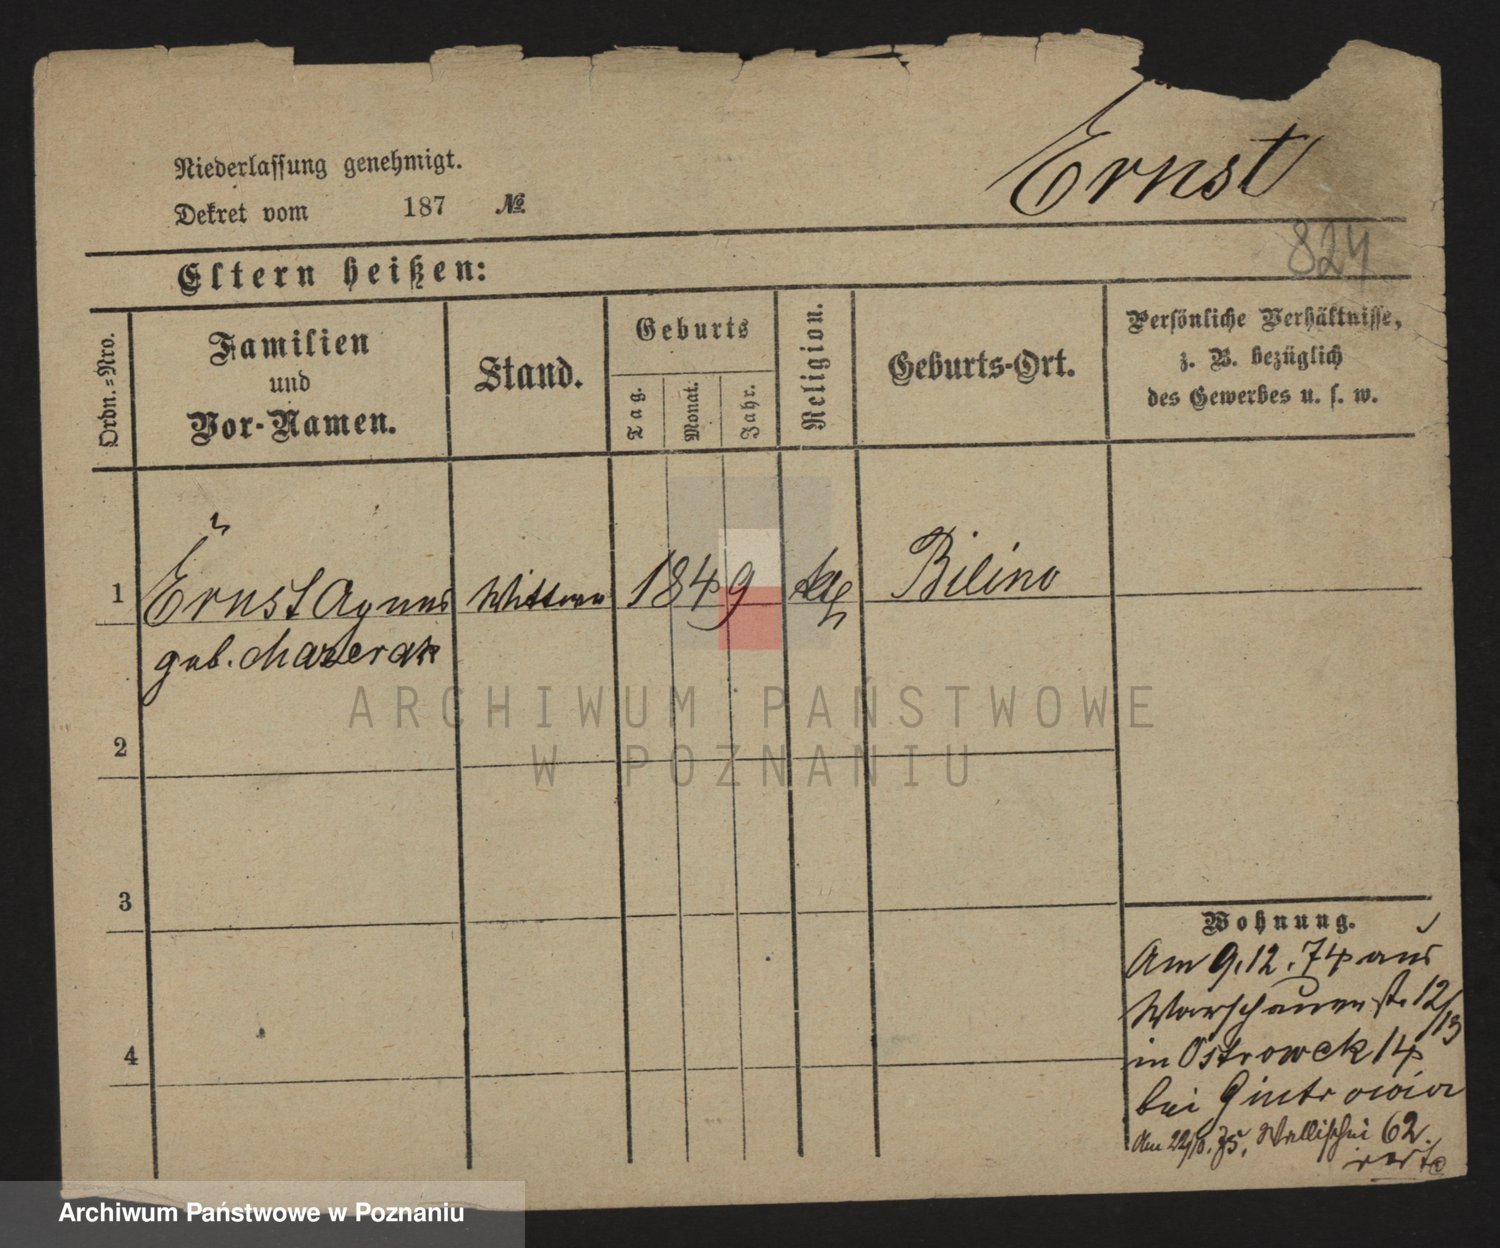 Ernst
Niederlassung genehmigt.
Dekret vom 187 №
824
Eltern heißen:
Ordn.=Nro.
Familien
und
Vor-Namen.
Stand.
Geburts
Tag.
Monat.
Jahr.
Religion.
Geburts-Ort.
Persönliche Verhältnisse,
z. B. bezüglich
des Gewerbes u. s. w.
1 Ernst Agnes Wittwe 1849 kth Bilino
geb. Mazerak
2
3
4
Wohnung.
Am 9.12.74 aus
Warschauerst. 12/13
in Ostrowek 14
bei
Am 75. Wallischei 62.
ARCHIWUM PAŃSTWOWE
W POZNANIU
Archiwum Państwowe w Poznaniu